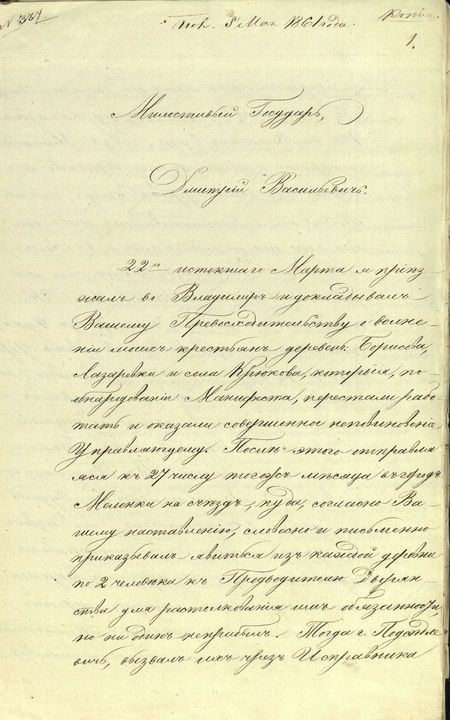 № 337
Пол. 5 Мая 1861 года.
Копія.
1.
Милостивый Государь,
Дмитрій Васильевичъ.
22го истекшаго Марта я пріѣз
жалъ во Владиміръ и докладывалъ
Вашему Превосходительству о волне
ніи моихъ крестьянъ деревень: Борисова,
Лазаревки и села Крюкова, которыя, по
обнародованіи Манифеста, перестали рабо
тать и оказали совершенное неповиновеніе
Управляющему. Послѣ этого отправля
лся къ 27 числу тогожъ мѣсяца въ городъ
Меленки на съѣздъ, куда, согласно Ва
шему наставленію, словесно и письменно
приказывалъ явиться изъ каждой деревни
по 2 человѣка къ Предводителю Дворян
ства для растолкованія имъ обязанностей,
но ни одинъ не прибылъ. Тогда г.
вичъ, вызвалъ ихъ чрезъ Исправника